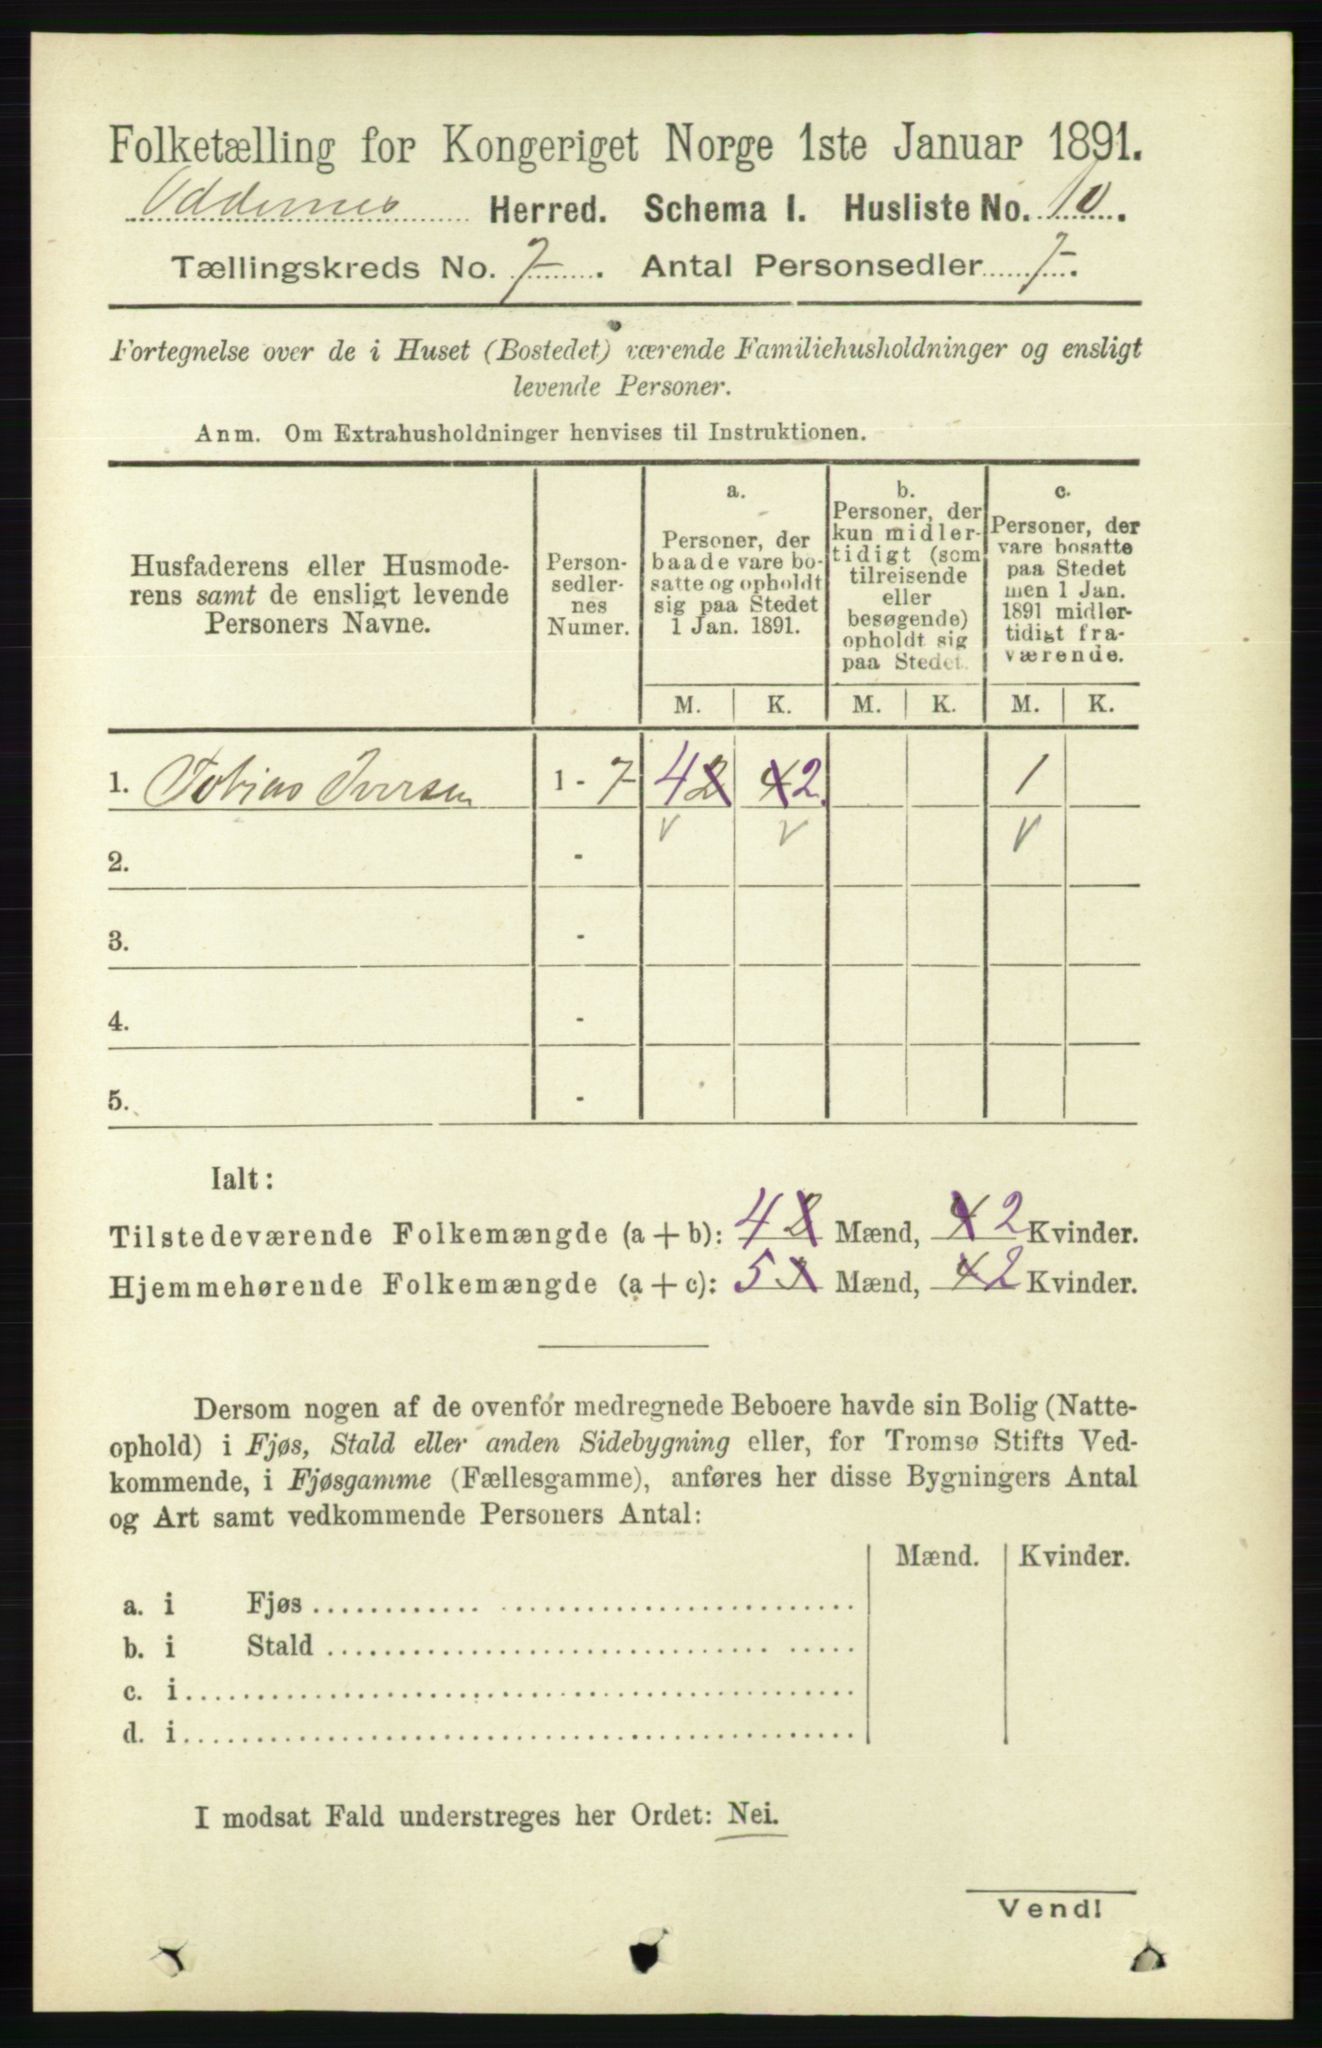 Folketælling for Kongeriget Norge 1ste Januar 1891.
Oddernes Herred. Schema I. Husliste No. 10.
Tællingskreds No. 7. Antal Personsedler 7.
Fortegnelse over de i Huset (Bostedet) værende Familiehusholdninger og ensligt
levende Personer.
Anm. Om Extrahusholdninger henvises til Instruktionen.
Husfaderens eller Husmode-
rens samt de ensligt levende
Personers Navne.
Person-
sedler-
nes
Numer.
a.
Personer, der
baade vare bo-
satte og opholdt
sig paa Stedet
1 Jan. 1891.
b.
Personer, der
kun midler-
tidigt (som
tilreisende
eller
besøgende)
opholdt sig
paa Stedet.
c.
Personer, der
vare bosatte
paa Stedet
men 1 Jan.
1891 midler-
tidigt fra-
værende.
M. K. M. K. M. K.
1. Tobias Iversen 1 - 7 4 2 4 2. 1
2. -
3. -
4. -
5. -
Ialt:
Tilstedeværende Folkemængde (a + b): 4 2 Mænd, 4 2 Kvinder.
Hjemmehørende Folkemængde (a + c): 5 3 Mænd, 4 2 Kvinder.
Dersom nogen af de ovenfor medregnede Beboere havde sin Bolig (Natte-
ophold) i Fjøs, Stald eller anden Sidebygning eller, for Tromsø Stifts Ved-
kommende, i Fjøsgamme (Fællesgamme), anføres her disse Bygningers Antal
og Art samt vedkommende Personers Antal:
Mænd. Kvinder.
a. i Fjøs
b. i Stald
c. i
d. i
I modsat Fald understreges her Ordet: Nei.
Vend!